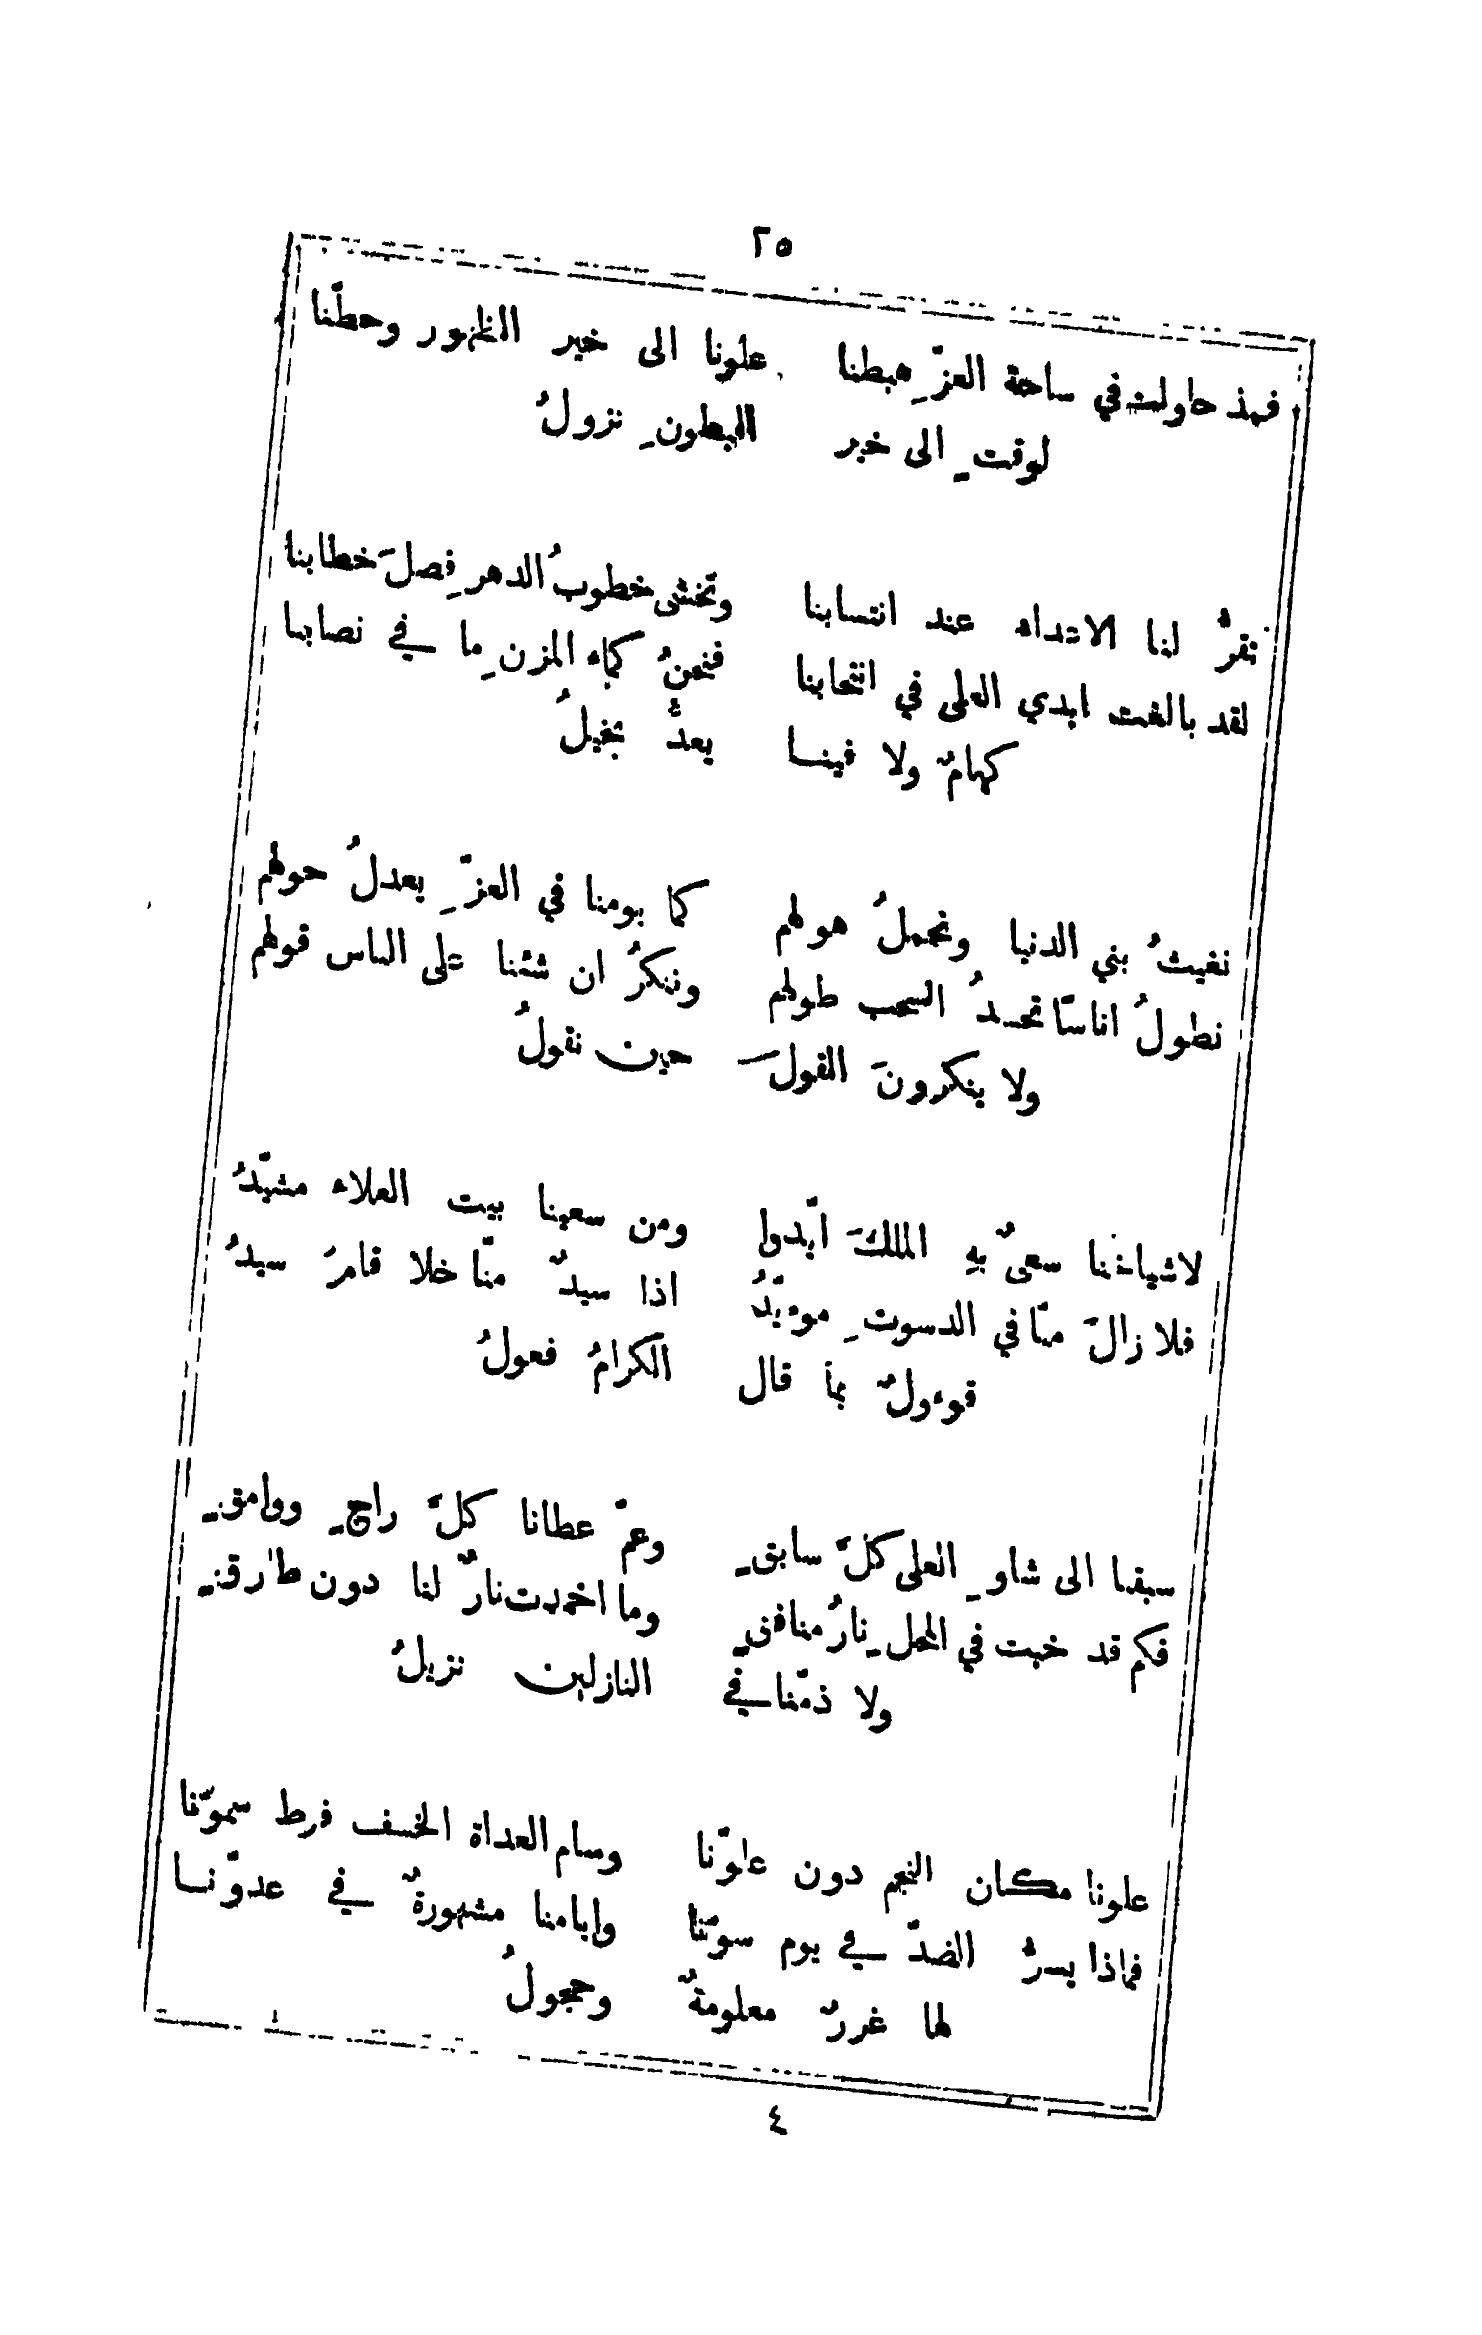 ٢٥
فمذ حاولت في ساحة العزِّ هبطنا علونا الى خير الظهور وحطّنا
لوقتِ الى خير البطونِ نزولُ
نقرُّ لنا الاعداء عند انتسابنا وتخشى خطوبُ الدهرِ فصلَ خطابنا
لقد بالغت ايدي العلى في انتخابنا فنحنُ كماء المزنِ ما في نصابنا
كهامٌ ولا فينا يعدُّ بخيلُ
نغيثُ بني الدنيا ونحملُ هولهم كما يومنا في العزِّ يعدلُ حولهم
نطولُ اناسًا تحسدُ السحب طولهم وننكرُ ان شئنا على الناس قولهم
ولا ينكرونَ القولَ حين نقولُ
لاشياخنا سعيٌ بهِ الملكَ ايّدوا ومن سعينا بيت العلاء مشيّدُ
فلا زالَ منّا في الدسوتِ موءيّدُ اذا سيدٌ منّا خلا قامَ سيدُ
قوءولٌ بما قال الكرامُ فعولُ
سبقنا الى شاوِ العلى كلَّ سابقِ وعمّ عطانا كلَّ راجٍ ووامقِ
فكم قد خبت في المحلِ نارُ منافقِ وما اخمدت نارٌ لنا دون طارقِ
ولا ذمّنا في النازلين نزيلُ
علونا مكان النجم دون علوّنا وسام العداة الخسف فرط سموّنا
فماذا يسرُّ الضدَّ في يوم سوّنا وايامنا مشهورةٌ في عدوّنا
لها غررٌ معلومةٌ وحجولُ
٤